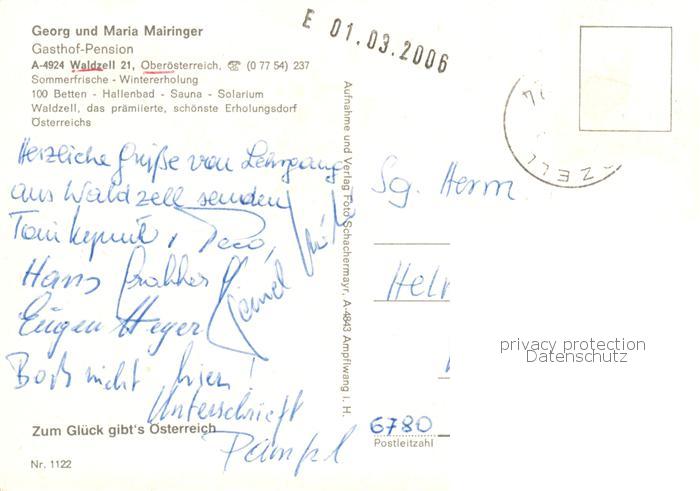 Georg und Maria Mairinger
Gasthof-Pension
A-4924 Waldzell 21, Oberösterreich, ☎ (0 77 54) 237
Sommerfrische - Wintererholung
100 Betten - Hallenbad - Sauna - Solarium
Waldzell, das prämiierte, schönste Erholungsdorf
Österreichs
E 01.03.2006
ZELL
Herzliche Grüße von Lehrgang
aus Waldzell senden
Toni
Hans
Eugen Heyer
nicht hier!
Unterschrift
Aufnahme und Verlag Foto Schachermayr, A-4843 Ampflwang i. H.
Sg. Herrn
Hel
privacy protection
Datenschutz
6780
Postleitzahl
Zum Glück gibt's Österreich
Nr. 1122